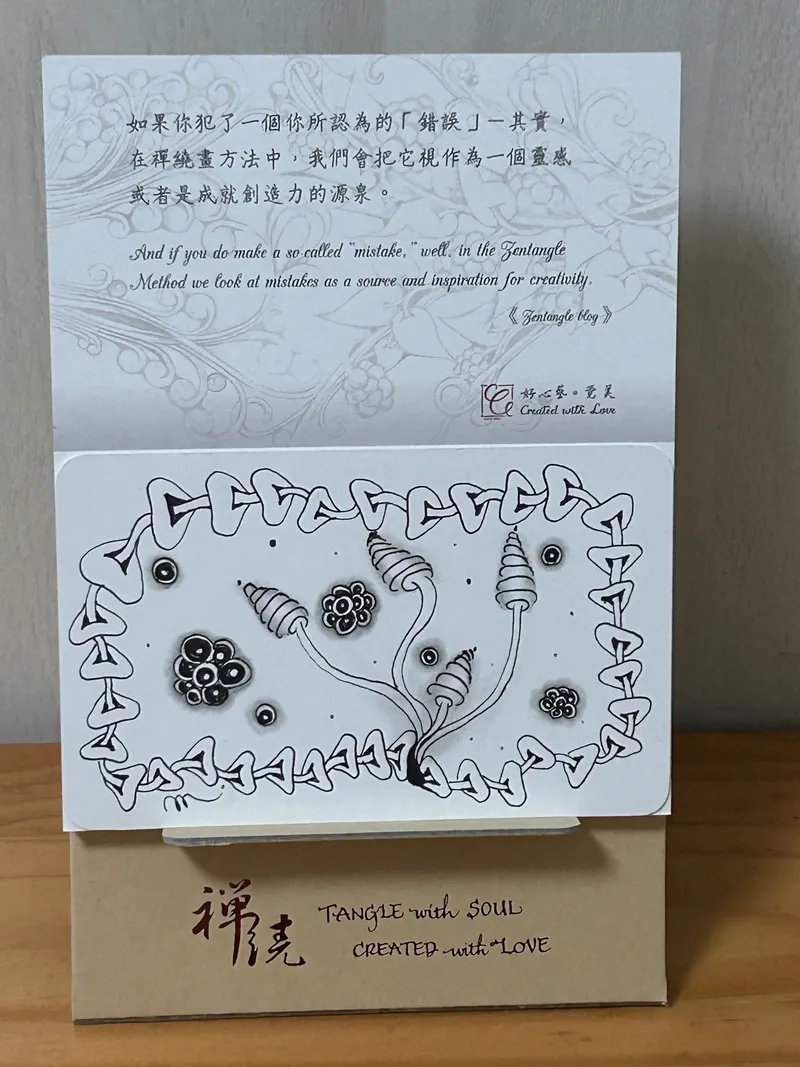 如果你犯了一個你所認為的「錯誤」—其實，
在禪繞畫方法中，我們會把它視作為一個靈感
或者是成就創造力的源泉。
And if you do make a so-called "mistake," well, in the Zentangle
Method we look at mistakes as a source and inspiration for creativity.
《Zentangle blog》
好心藝。覓美
Created with Love
禪繞
TANGLE with SOUL
CREATED with LOVE